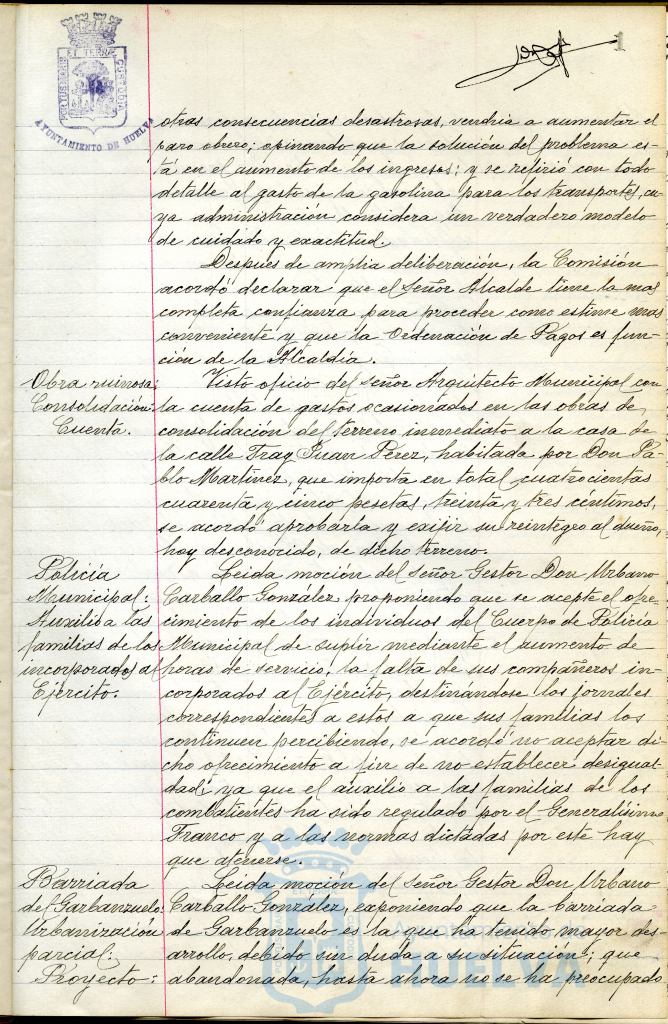 1
PORTUS MARIS ET TERRAE CUSTODIA
AYUNTAMIENTO DE HUELVA
otras consecuencias desastrosas, vendria a aumentar el
paro obrero; opinando que la solución del problema es-
tá en el aumento de los ingresos; y se refirió con todo
detalle al gasto de la gasolina para los transportes, cu-
ya administración considera un verdadero modelo
de cuidado y exactitud.
Despues de amplia deliberación, la Comisión
acordó declarar que el Señor Alcalde tiene la mas
completa confianza para proceder como estime mas
conveniente y que la Ordenación de Pagos es fun-
ción de la Alcaldía.
Obra ruinosa:
Consolidación:
Cuenta.
Visto oficio del señor Arquitecto Municipal con
la cuenta de gastos ocasionados en las obras de
consolidación del terreno inmediato a la casa de
la calle Fray Juan Pérez, habitada por Don Pa-
blo Martinez, que importa en total cuatrocientas
cuarenta y cinco pesetas, treinta y tres céntimos,
se acordó aprobarla y exijir su reintegro al dueño,
hoy desconocido, de dicho terreno.
Policía
Municipal:
Auxilio a las
familias de los
incorporados al
Ejército.
Leida moción del señor Gestor Don Urbano
Carballo González, proponiendo que se acepte el ofre-
cimiento de los individuos del Cuerpo de Policía
Municipal de suplir mediante el aumento de
horas de servicio, la falta de sus compañeros in-
corporados al Ejército, destinandose los jornales
correspondientes a estos a que sus familias los
continuen percibiendo, se acordó no aceptar di-
cho ofrecimiento a fin de no establecer desigual-
dad; ya que el auxilio a las familias de los
combatientes ha sido regulado por el Generalísimo
Franco y a las normas dictadas por este hay
que atenerse.
Barriada
del Garbanzuelo:
Urbanización
parcial:
Proyecto:
Leida moción del señor Gestor Don Urbano
Carballo González, exponiendo que la barriada
de Garbanzuelo es la que ha tenido mayor des-
arrollo, debido sin duda a su situación; que
abandonada, hasta ahora no se ha preocupado
Ayuntamiento de
HUELVA